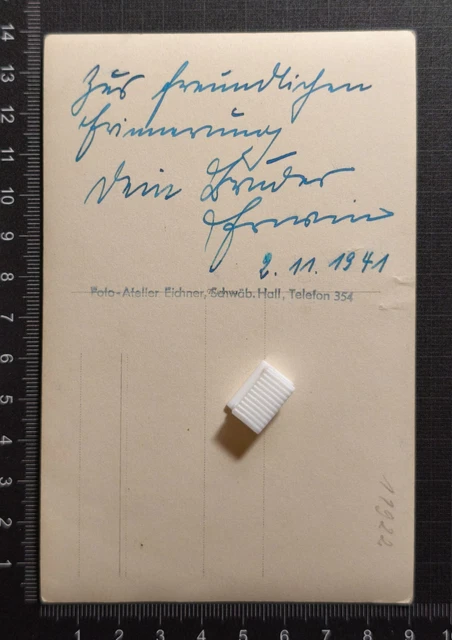 Zur freundlichen
Erinnerung
Dein Bruder
Erwin
2. 11. 1941
Foto-Atelier Eichner, Schwäb. Hall, Telefon 354
11922
14
13
12
11
10
9
8
7
6
5
4
3
2
1
1 2 3 4 5 6 7 8 9